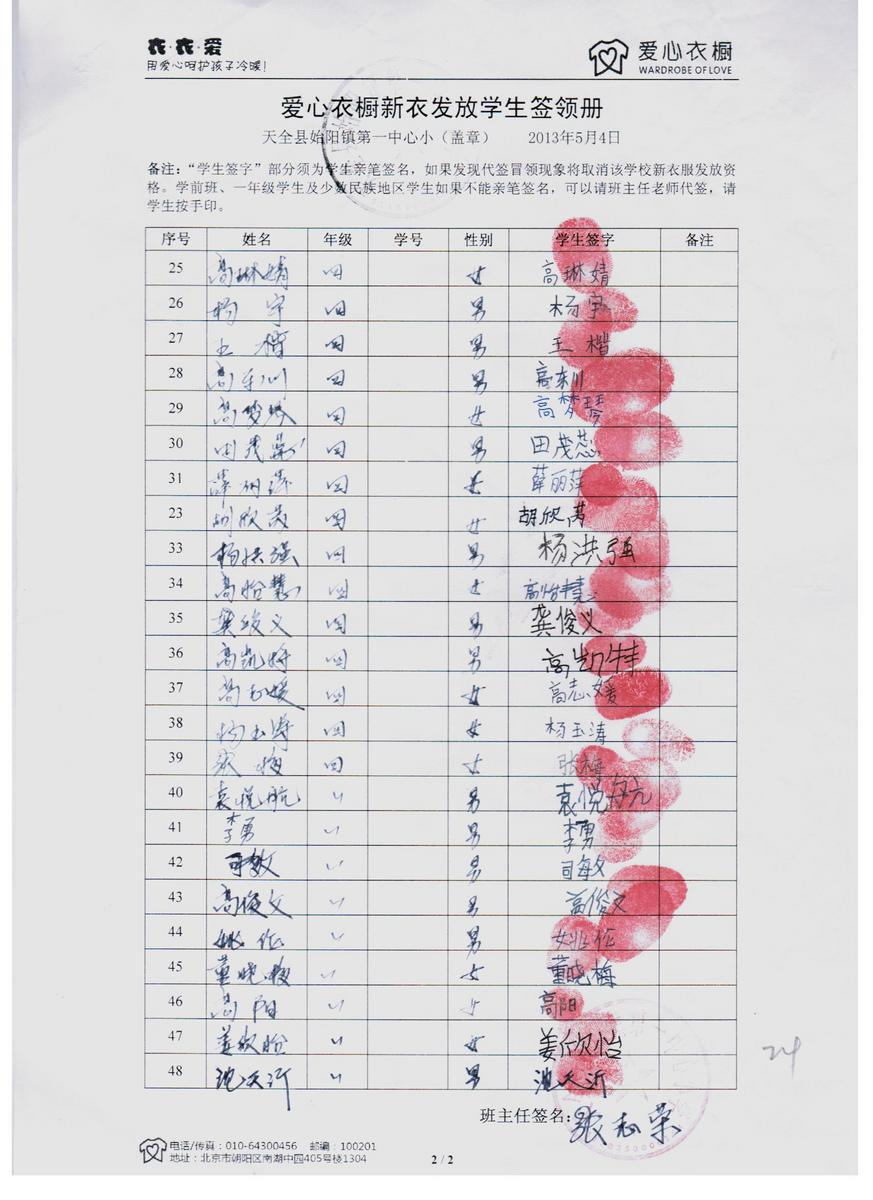 衣·衣·爱
用爱心呵护孩子冷暖!
爱心衣橱
WARDROBE OF LOVE
爱心衣橱新衣发放学生签领册
天全县始阳镇第一中心小（盖章） 2013年5月4日
备注：“学生签字”部分须为学生亲笔签名，如果发现代签冒领现象将取消该学校新衣服发放资
格。学前班、一年级学生及少数民族地区学生如果不能亲笔签名，可以请班主任老师代签，请
学生按手印。
序号 姓名 年级 学号 性别 学生签字 备注
25 高琳婧 四 女 高琳婧
26 杨宇 四 男 杨宇
27 王楷 四 男 王楷
28 高东川 四 男 高东川
29 高梦琴 四 女 高梦琴
30 田茂蕊 四 男 田茂蕊
31 薛丽萍 四 女 薛丽萍
23 胡欣茂 四 女 胡欣
33 杨洪强 四 男 杨洪强
34 高怡慧 四 女 高怡慧
35 龚俊义 四 男 龚俊义
36 高凯特 四 男 高凯特
37 高志媛 四 女 高志媛
38 杨玉涛 四 女 杨玉涛
39 张梅 四 女 张梅
40 袁悦航 〃 男 袁悦航
41 李勇 〃 男 李勇
42 司敏 〃 男 司敏
43 高俊文 〃 男 高俊文
44 姚佐 〃 男 姚佐
45 董晓梅 〃 女 董晓梅
46 高阳 〃 女 高阳
47 姜欣怡 〃 女 姜欣怡
48 池天沂 〃 男 池天沂
24
班主任签名：张志荣
电话/传真：010-64300456 邮编：100201
地址：北京市朝阳区南湖中园405号楼1304
2 / 2